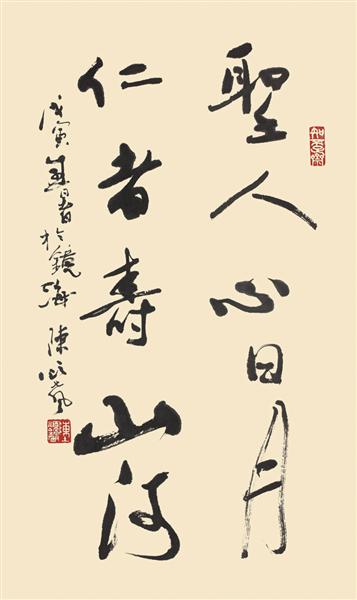 聖人心日月
仁者壽山河
戊寅夏月書於鏡海 陳